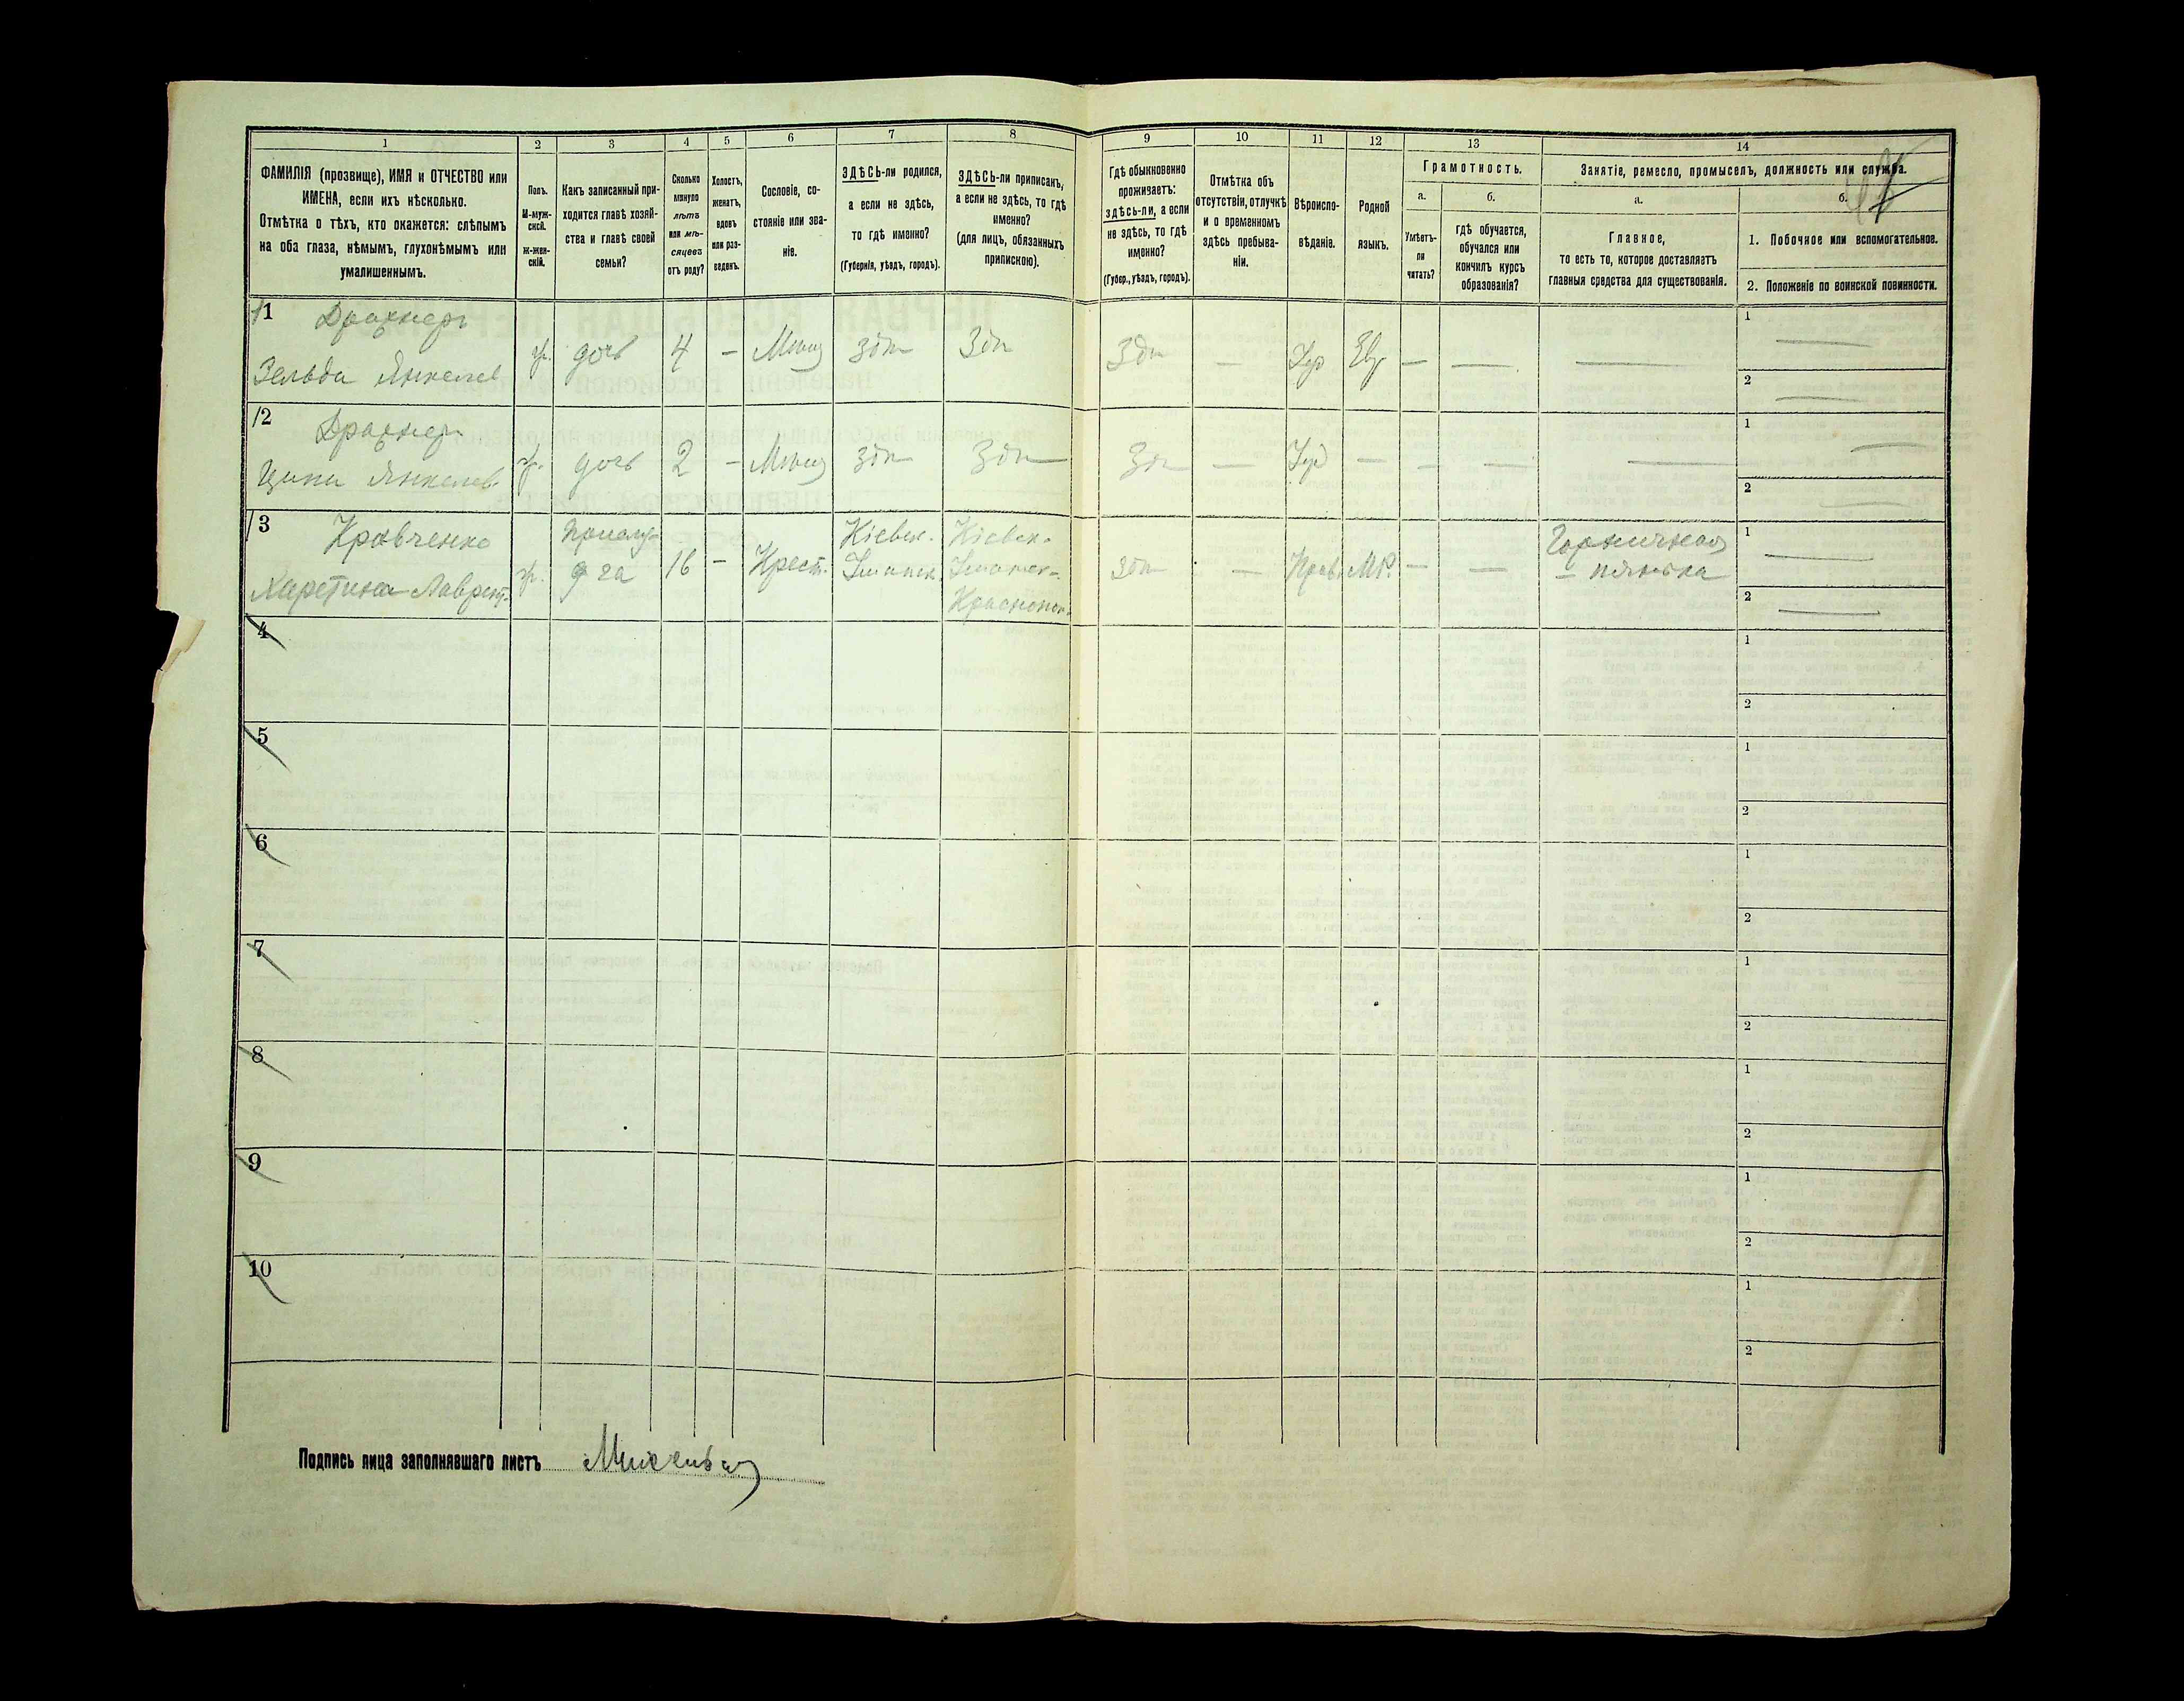 1
2
3
4
5
6
7
8
ФАМИЛІЯ (прозвище), ИМЯ и ОТЧЕСТВО или
ИМЕНА, если ихъ нѣсколько.
Отмѣтка о тѣхъ, кто окажется: слѣпымъ
на оба глаза, нѣмымъ, глухонѣмымъ или
умалишеннымъ.
Полъ.
М-муж-
ской.
ж-жен-
скій.
Какъ записанный при-
ходится главѣ хозяй-
ства и главѣ своей
семьи?
Сколько
минуло
лѣтъ
или мѣ-
сяцевъ
отъ роду?
Холостъ,
женатъ,
вдовъ
или раз-
веденъ.
Сословіе, со-
стояніе или зва-
ніе.
ЗДѢСЬ-ли родился,
а если не здѣсь,
то гдѣ именно?
(Губернія, уѣздъ, городъ).
ЗДѢСЬ-ли приписанъ,
а если не здѣсь, то гдѣ
именно?
(для лицъ, обязанныхъ
припискою).
9
10
11
12
13
14
Гдѣ обыкновенно
проживаетъ:
здѣсь-ли, а если
не здѣсь, то гдѣ
именно?
(Губер., уѣздъ, городъ).
Отмѣтка объ
отсутствіи, отлучкѣ
и о временномъ
здѣсь пребыва-
ніи.
Вѣроиспо-
вѣданіе.
Родной
языкъ.
Грамотность.
а.
Умѣетъ-
ли
читать?
б.
гдѣ обучается,
обучался или
кончилъ курсъ
образованія?
Занятіе, ремесло, промыселъ, должность или служба.
а.
Главное,
то есть то, которое доставляетъ
главныя средства для существованія.
б.
1. Побочное или вспомогательное.
2. Положеніе по воинской повинности.
11
Зельда Янкелев
ж. дочь 4 — Мѣщ здѣ Здѣ Здѣ — Іуд Евр — — —
1 —
2 —
12
Ципа Янкелев
ж. дочь 2 — Мѣщ здѣ Здѣ Здѣ — Іуд — — — —
1 —
2 —
13
Кравченко
Харетина Лаврент.
ж. Прислу-
га
16 — Крест.
Кіевск.
Уманск.
Кіевск.
Уманск.
здѣ — Прав. МР. — —
Горничная
— нянька
1 —
2 —
4
1
2
5
1
2
6
1
2
7
1
2
8
1
2
9
1
2
10
1
2
Подпись лица заполнявшаго листъ